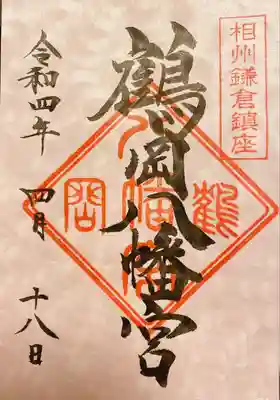 相州鎌倉鎮座
鶴岡八幡宮
令和四年
四月
十八日